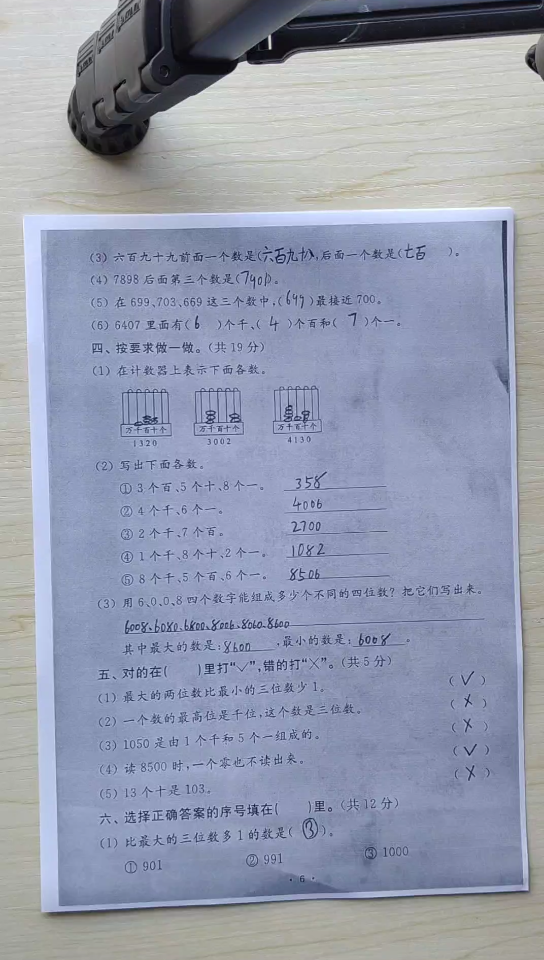 (3) 六百九十九前面一个数是(六百九十八),后面一个数是(七百 )。
(4) 7898后面第三个数是(7901)。
(5) 在699、703、669这三个数中,(699)最接近700。
(6) 6407里面有(6 )个千、( 4 )个百和( 7 )个一。
四、按要求做一做。(共19分)
(1) 在计数器上表示下面各数。
万千百十个 万千百十个 万千百十个
1320 3002 4130
(2) 写出下面各数。
① 3个百、5个十、8个一。 358
② 4个千、6个一。 4006
③ 2个千、7个百。 2700
④ 1个千、8个十、2个一。 1082
⑤ 8个千、5个百、6个一。 8506
(3) 用6、0、0、8四个数字能组成多少个不同的四位数?把它们写出来。
6008、6080、6800、8006、8060、8600
其中最大的数是:8600,最小的数是:6008。
五、对的在( )里打“√”,错的打“×”。(共5分)
(1) 最大的两位数比最小的三位数少1。 (√)
(2) 一个数的最高位是千位,这个数是三位数。 (×)
(3) 1050是由1个千和5个一组成的。 (×)
(4) 读8500时,一个零也不读出来。 (√)
(5) 13个十是103。 (×)
六、选择正确答案的序号填在( )里。(共12分)
(1) 比最大的三位数多1的数是( ③ )。
① 901 ② 991 ③ 1000
· 6 ·